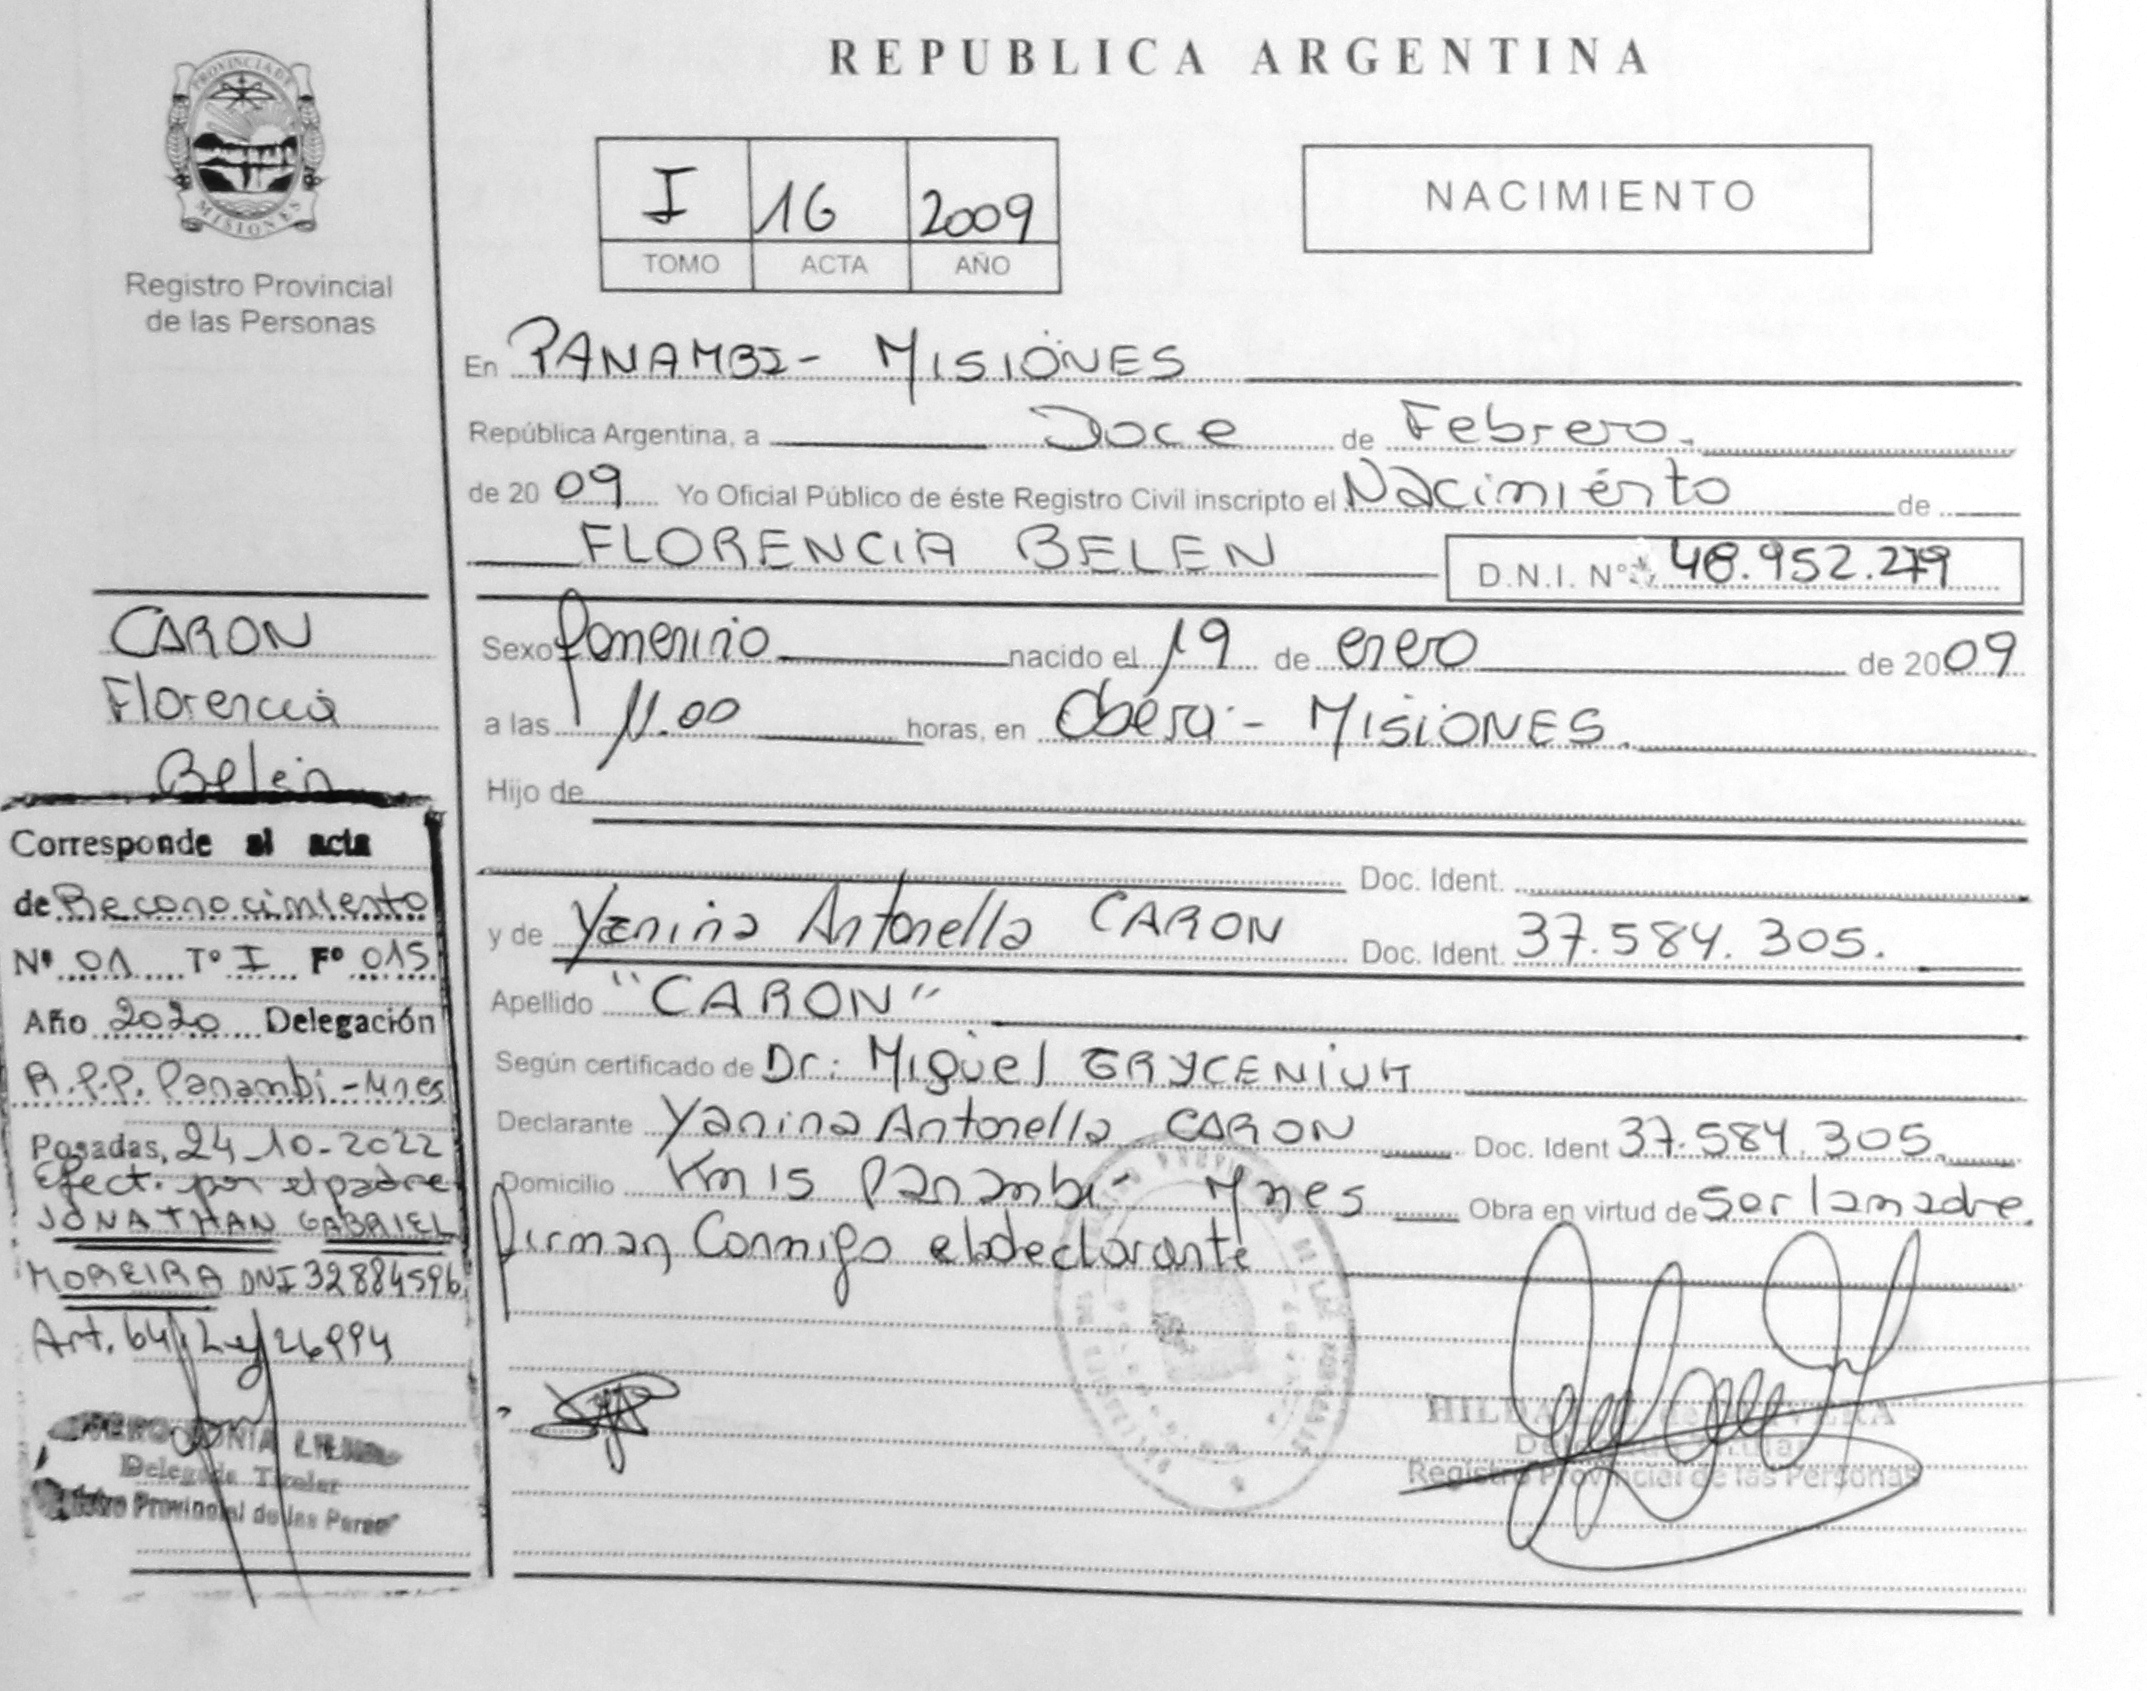 REPUBLICA ARGENTINA
PROVINCIA DE
MISIONES
Registro Provincial
de las Personas
I 16 2009
TOMO ACTA AÑO
NACIMIENTO
En PANAMBI - MISIONES
República Argentina, a Doce de Febrero.
de 20 09 Yo Oficial Público de éste Registro Civil inscripto el Nacimiento de
FLORENCIA BELEN D.N.I. Nº 48.952.279
Sexo femenino nacido el 19 de enero de 2009
a las 11.00 horas, en Oberá - MISIONES.
Hijo de
Doc. Ident.
y de Yanina Antonella CARON Doc. Ident. 37.584.305.
Apellido "CARON"
Según certificado de Dr: Miguel GRYCENIUK
Declarante Yanina Antonella CARON Doc. Ident 37.584.305.
Domicilio Km 15 Panambi - Mnes Obra en virtud de Ser la madre.
firman Conmigo el declarante
Registro Provincial de las Personas
CARON
Florencia
Belén
Corresponde al acta
de Reconocimiento
Nº 01 Tº I Fº 015
Año 2020 Delegación
R.P.P. Panambi - Mnes
Posadas, 24-10-2022
Efect. por el padre
JONATHAN GABRIEL
MOREIRA DNI 32884596
Art. 64 Ley 26994
Delegada Titular
Provincial de las